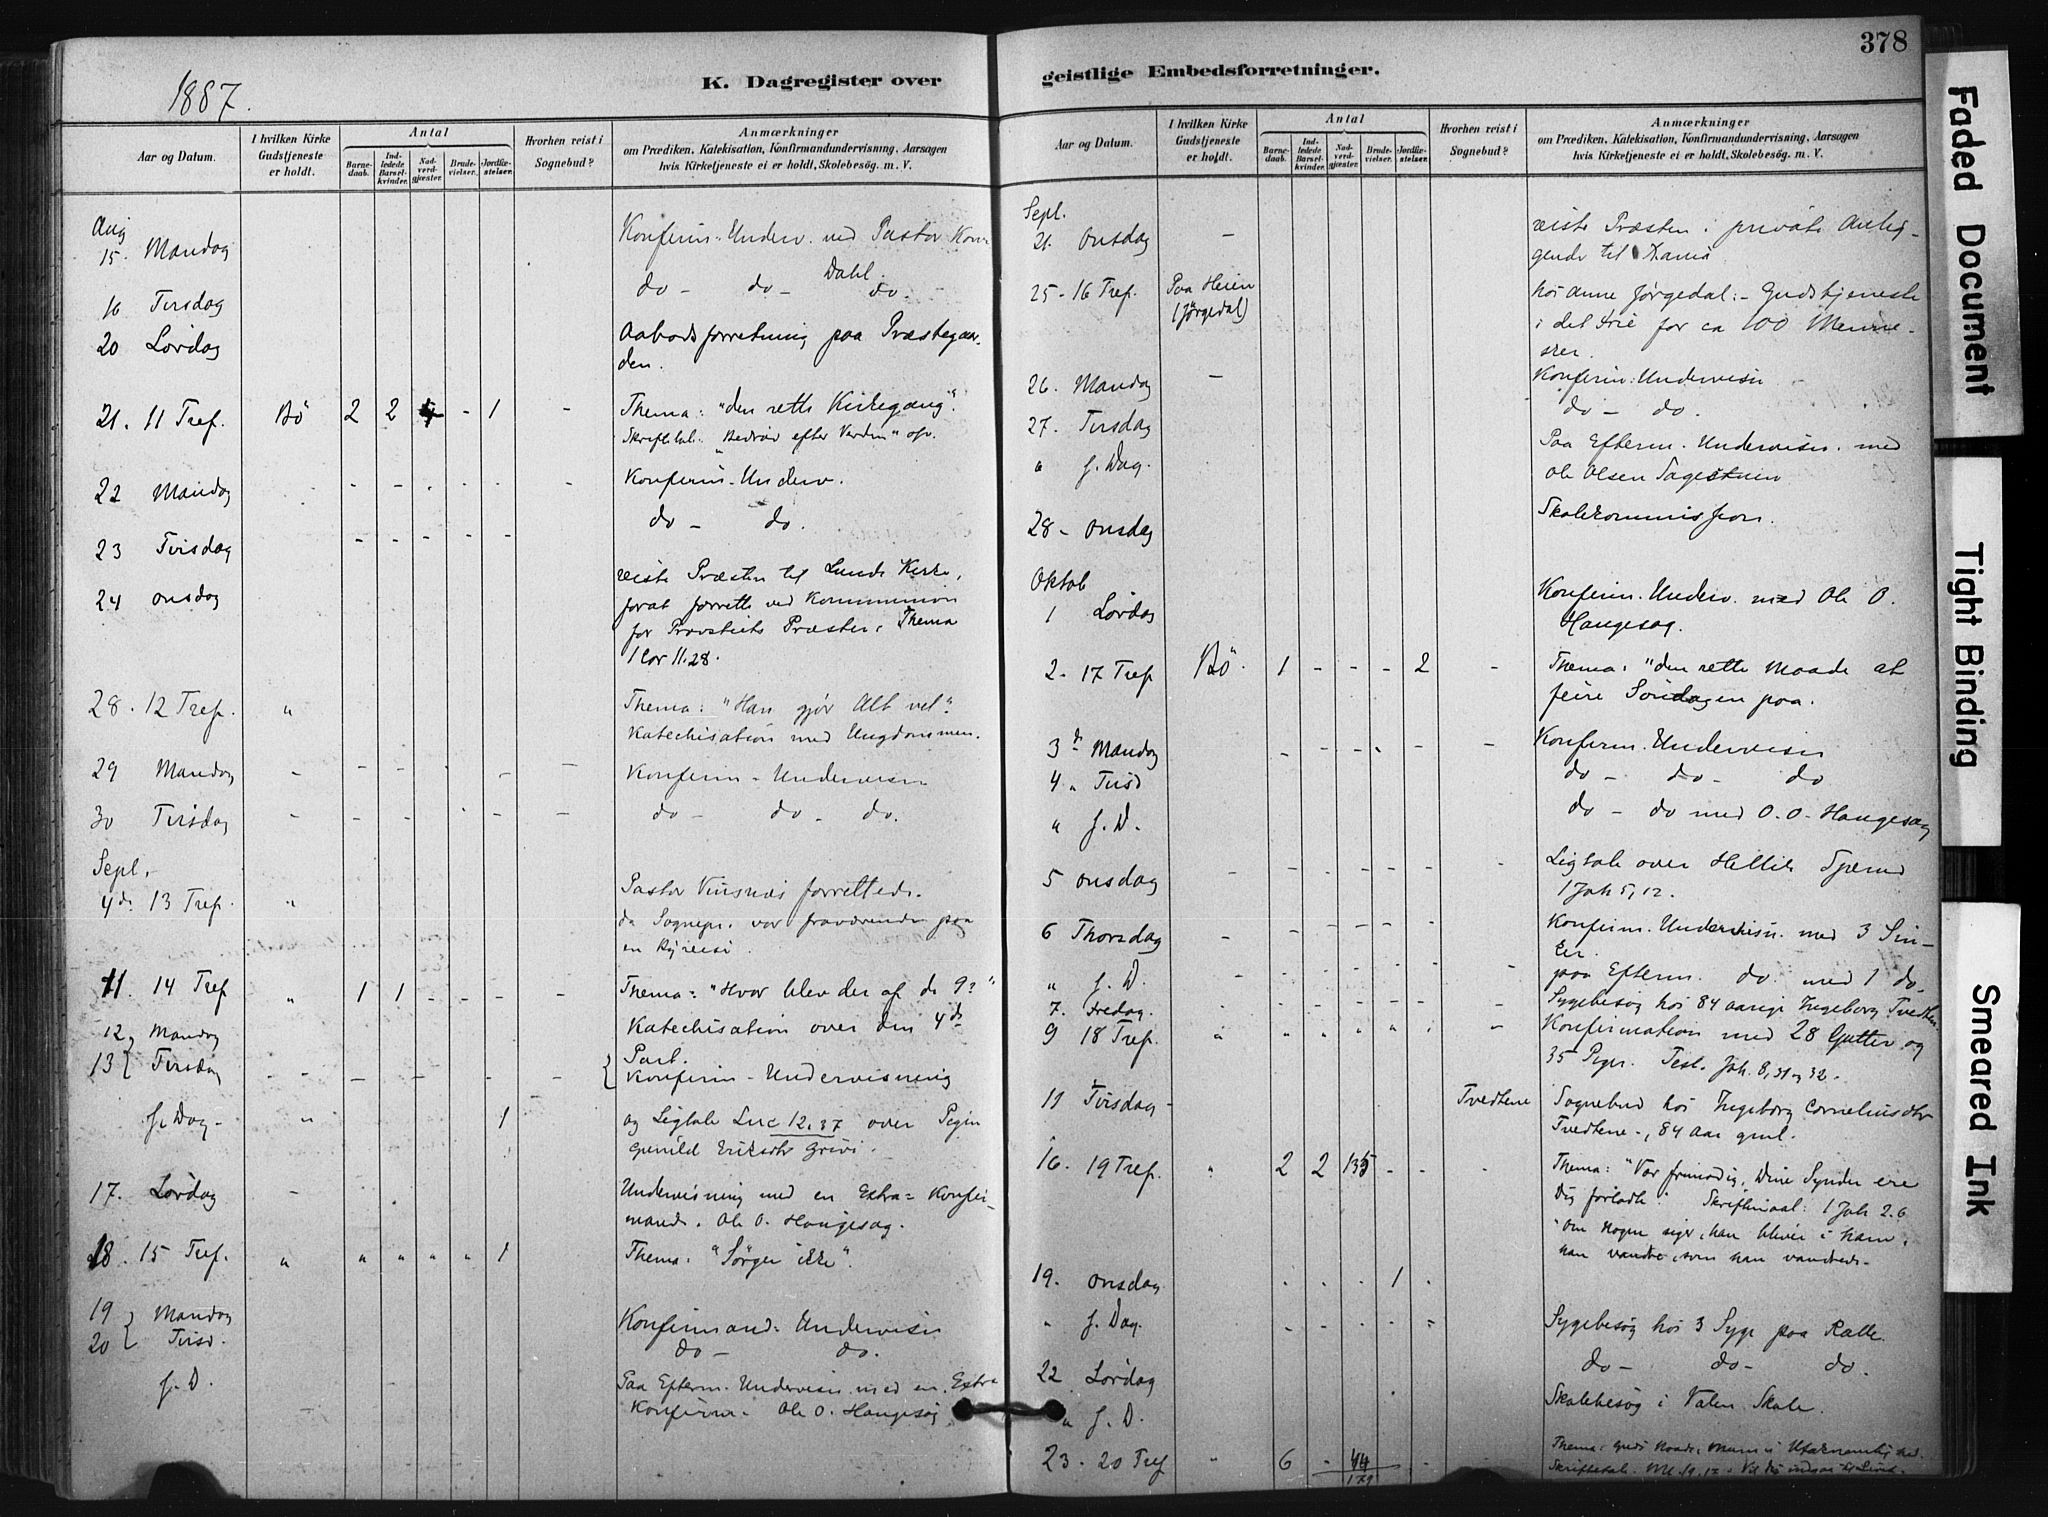 378
1887.
K. Dagregister over
geistlige Embedsforretninger.
Aar og Datum.
I hvilken Kirke Gudstjeneste er holdt.
Antal
Barne-daab.
Ind-ledede Barsel-kvinder.
Nad-verd-gjæster.
Brude-vielser.
Jordfæ-stelser.
Hvorhen reist i Sognebud?
Anmærkninger
om Prædiken, Katekisation, Konfirmandundervisning, Aarsagen
hvis Kirketjeneste ei er holdt, Skolebesøg. m. V.
Aug
15. Mandag Konfirm. Underv. ved Pastor
Dahl.
16 Tirsdag do - do - do.
20 Lørdag Aabodsforretning paa Præstegaar-
den.
21. 11 Tref. Bö 2 2 - 1 - Thema: "den rette Kirkegang".
Skriftetal: Bedröv efter Verden" osv.
22 Mandag Konfirm-Underv.
23 Tirsdag do - do.
24 onsdag reiste Præsten til Lunde Kirke,
forat forrette ved Kommunion
for Provstiets Præster. Thema
1 Cor 11.28.
28. 12 Tref. " Thema: "Han gjør Alt vel".
Katechisation med Ungdommen.
29 Mandag Konfirm-Undervisn
30 Tirsdag do - do - do.
Sept.
4de 13 Tref. " Pastor forrettede.
da Sognepr. var fraværende paa
en
11. 14 Tref " 1 1 - - - - Thema: "Hvor blev der af de 9?"
Katechisation over den 4de
Part.
12, Mandag
13 Tirsdag Konfirm-Undervisning
s. Dag - " 1 og Ligtale Luc 12.37 over Pigen
Gunild Eriksdtr Grivi.
17. Lørdag Undervisning med en Extra-Konfir-
mand. Ole O. Haugesag.
18. 15 Tref. " " " " " 1 Thema: "Sørger ikke".
19 Mandag Konfirmand-Undervisn
20 Tirsd. do - do.
s. D. Paa Efterm. Undervisn. med en Extra
Konfirm. Ole O. Haugesag
Aar og Datum.
I hvilken Kirke Gudstjeneste er holdt.
Antal
Barne-daab.
Ind-ledede Barsel-kvinder.
Nad-verd-gjæster.
Brude-vielser.
Jordfæ-stelser.
Hvorhen reist i Sognebud?
Anmærkninger
om Prædiken, Katekisation, Konfirmandundervisning, Aarsagen
hvis Kirketjeneste ei er holdt, Skolebesøg. m. V.
Sept.
21. onsdag - reiste Præsten i private Anlig-
gende til Xania
25 - 16 Tref. Paa Heien hos Anne Jørgedal: - Gudstjeneste
(Jørgedal) i det frie for ca 100 Menne-
sker.
26. Mandag - Konfirm: Undervisn
27. Tirsdag do - do.
" s. Dag. Paa Efterm. Undervisn. med
Ole Olsen Sagestuen
28 - onsdag Skolekommission.
Oktob
1 Lørdag Konfirm. Underv. med Ole O.
Haugesag.
2. 17 Tref Bö. 1 - - - 2 - Thema: "den rette Maade at
feire Søndagen paa.
3de Mandag Konfirm. Undervisn
4 " Tirsd do - do - do
" s. D. do - do med O. O. Haugesag
5 onsdag Ligtale over
1 Joh 5,12.
6 Thorsdag Konfirm. Undervisn. med 3 Sin-
ker.
" s. D. paa Efterm. do. med 1 do.
7. Fredag. Sygebesøg hos 84 aarige Ingeborg Tvedten.
9 18 Tref. " Konfirmation med 28 Gutter og
35 Piger. Text. Joh. 8,31 og 32.
11 Tirsdag - Tvedtene Sognebud hos Ingeborg Corneliusdtr
Tvedtene -, 84 Aar gml.
16. 19 Tref. " 2 2 135 - - - Thema: "Vær frimodig, Dine Synder ere
Dig forladte". 1 Joh 2.6
"om Nogen siger, han bliver i ham,
han vandre, som han vandrede.
19. onsdag 1
" s. Dag. Sygebesøg hos 3 Syge paa
22 Lørdag do - do - do.
" s. D. Skolebesøg i Valen Skole.
23. 20 Tref " 6 - 44 Thema:
179 Skriftetale.
Faded Document
Tight Binding
Smeared Ink